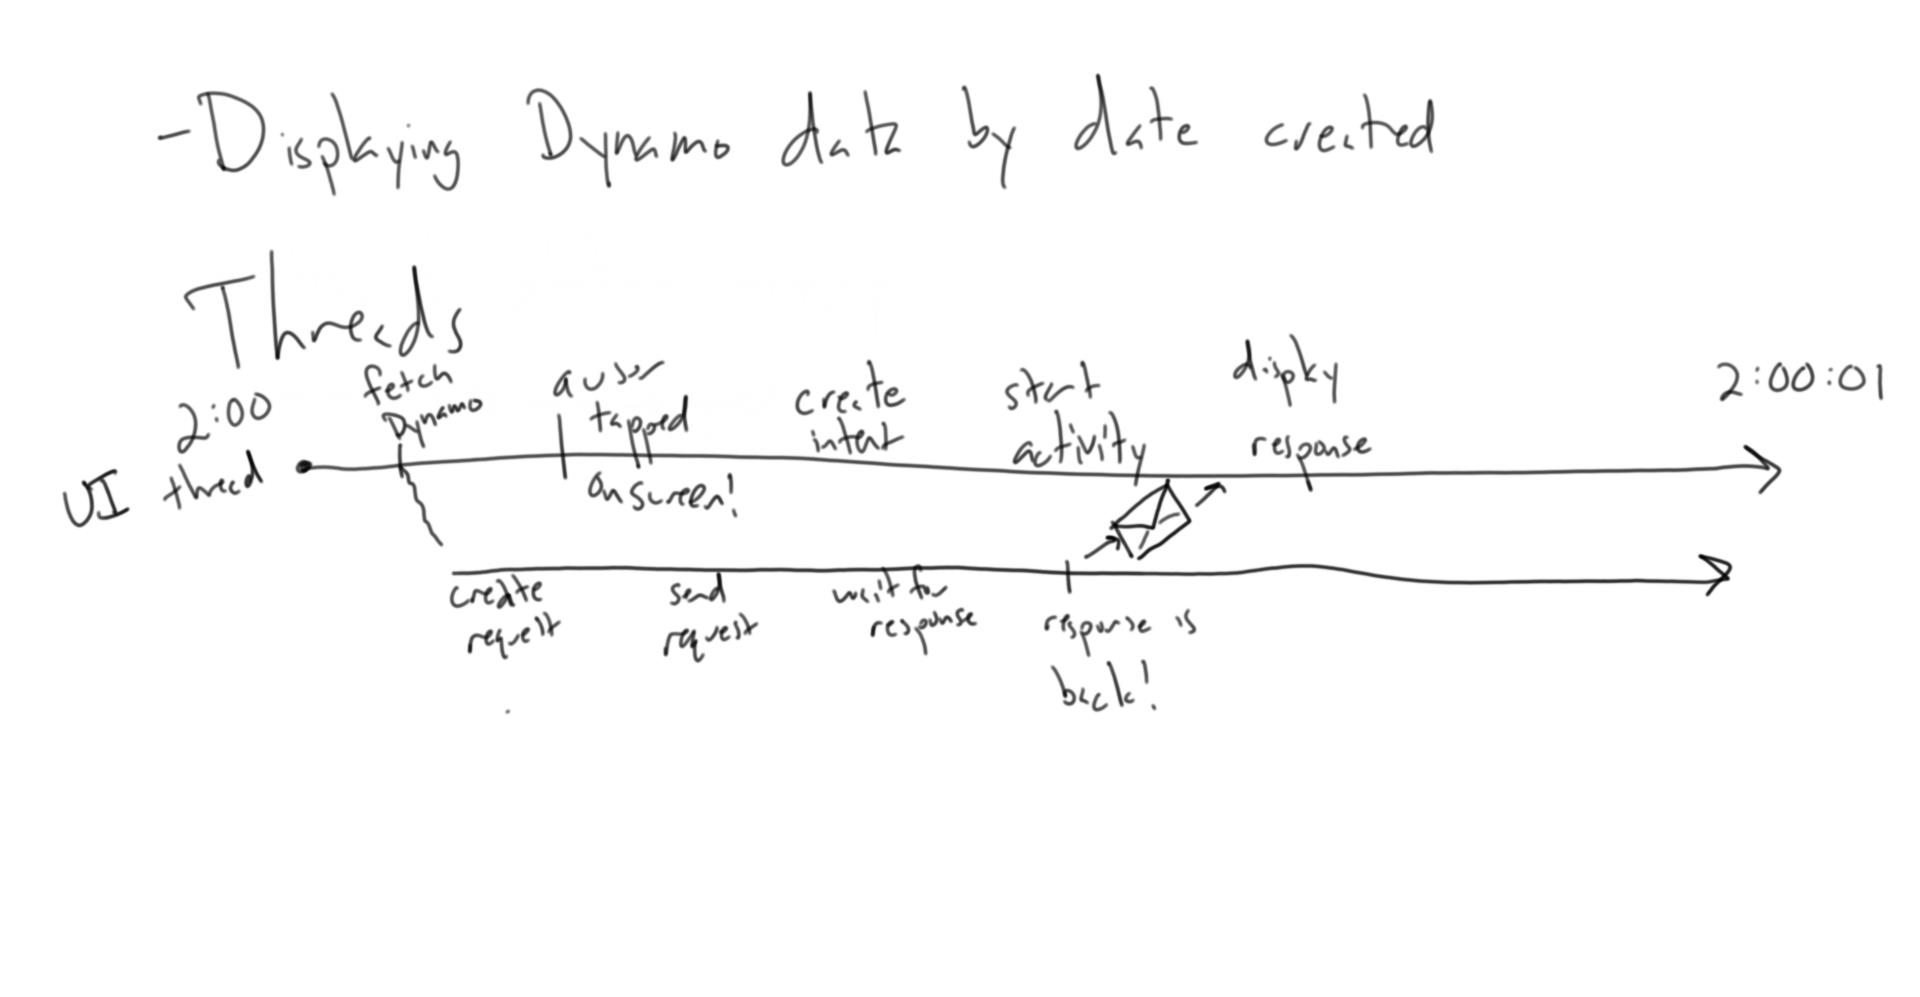 -Displaying Dynamo data by date created
Threads
2:00
fetch
Dynamo
a user
tapped
on screen!
create
intent
start
activity
display
response
2:00:01
UI thread
create
request
send
request
wait for
response
response is
back!